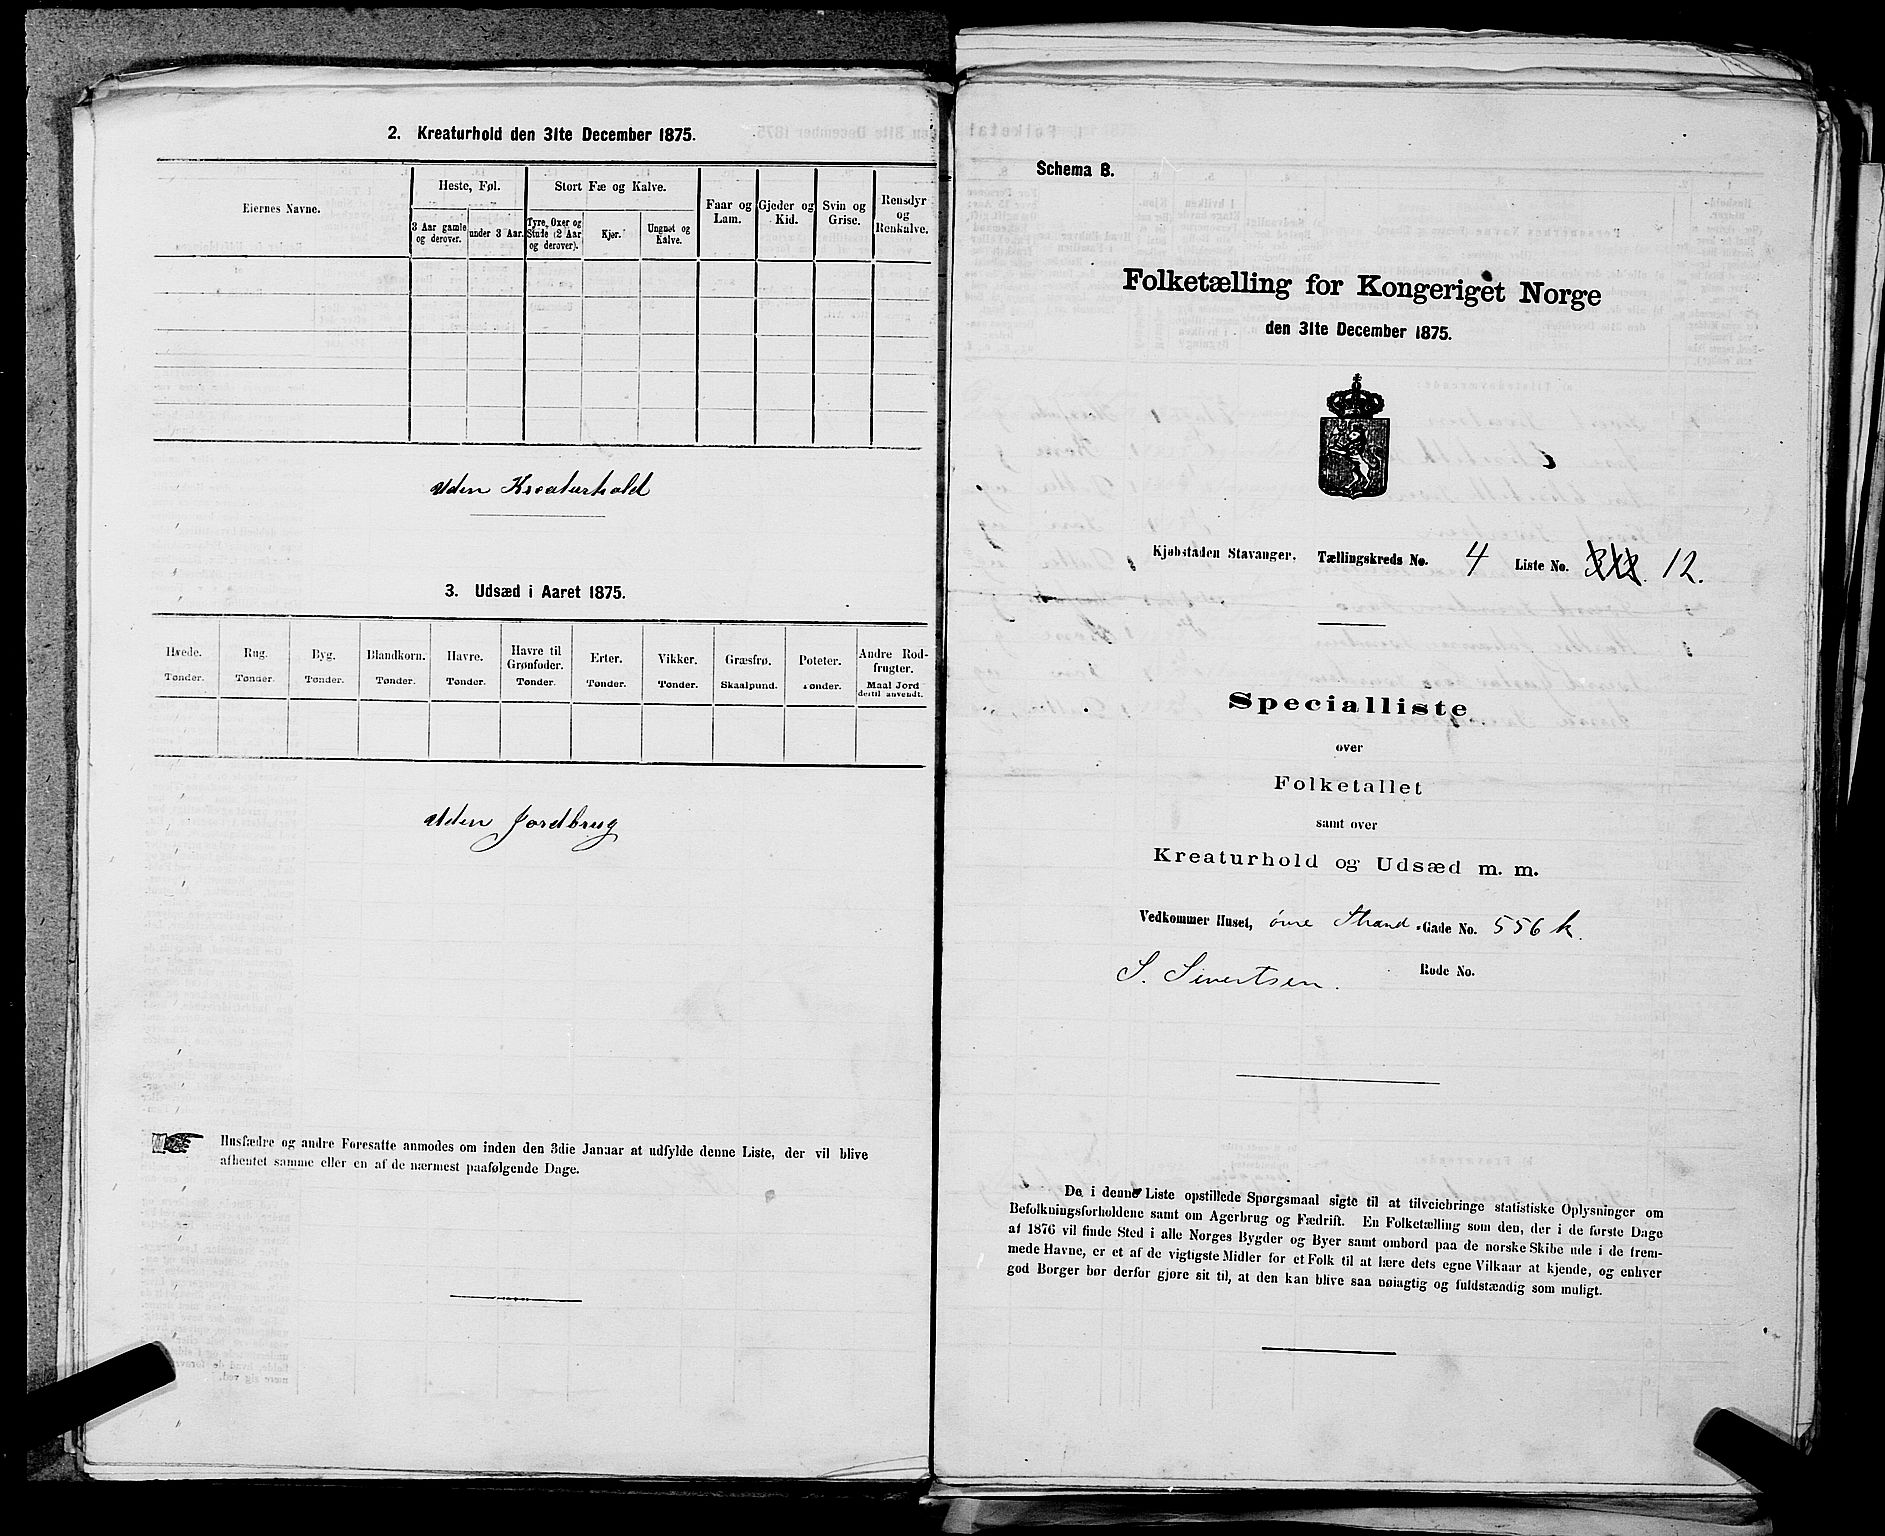 2. Kreaturhold den 31te December 1875.
Eiernes Navne.
Heste, Føl.
Stort Fæ og Kalve.
Faar og Lam.
Gjeder og Kid.
Svin og Grise.
Rensdyr og Renkalve.
3 Aar gamle og derover.
under 3 Aar.
Tyre, Oxer og Stude (2 Aar og derover).
Kjør.
Ungnøt og Kalve.
Uden Kreaturhold
3. Udsæd i Aaret 1875.
Hvede. Rug. Byg. Blandkorn. Havre. Havre til Grønfoder. Erter. Vikker. Græsfrø. Poteter. Andre Rodfrugter.
Tønder. Tønder. Tønder. Tønder. Tønder. Tønder. Tønder. Tønder. Skaalpund. Tønder. Maal Jord dertil anvendt.
Uden Jordbrug
Husfædre og andre Foresatte anmodes om inden den 3die Januar at udfylde denne Liste, der vil blive
afhentet samme eller en af de nærmest paafølgende Dage.
Schema B.
Folketælling for Kongeriget Norge
den 31te December 1875.
Kjøbstaden Stavanger. Tællingskreds No. 4 Liste No. 12.
Specialliste
over
Folketallet
samt over
Kreaturhold og Udsæd m. m.
Vedkommer Huset, øvre Strand-Gade No. 556 k.
S. Sivertsen. Rode No.
De i denne Liste opstillede Spørgsmaal sigte til at tilveiebringe statistiske Oplysninger om
Befolkningsforholdene samt om Agerbrug og Fædrift. En Folketælling som den, der i de første Dage
af 1876 vil finde Sted i alle Norges Bygder og Byer samt ombord paa de norske Skibe ude i de frem-
mede Havne, er et af de vigtigste Midler for et Folk til at lære dets egne Vilkaar at kjende, og enhver
god Borger bør derfor gjøre sit til, at den kan blive saa nøiagtig og fuldstændig som muligt.